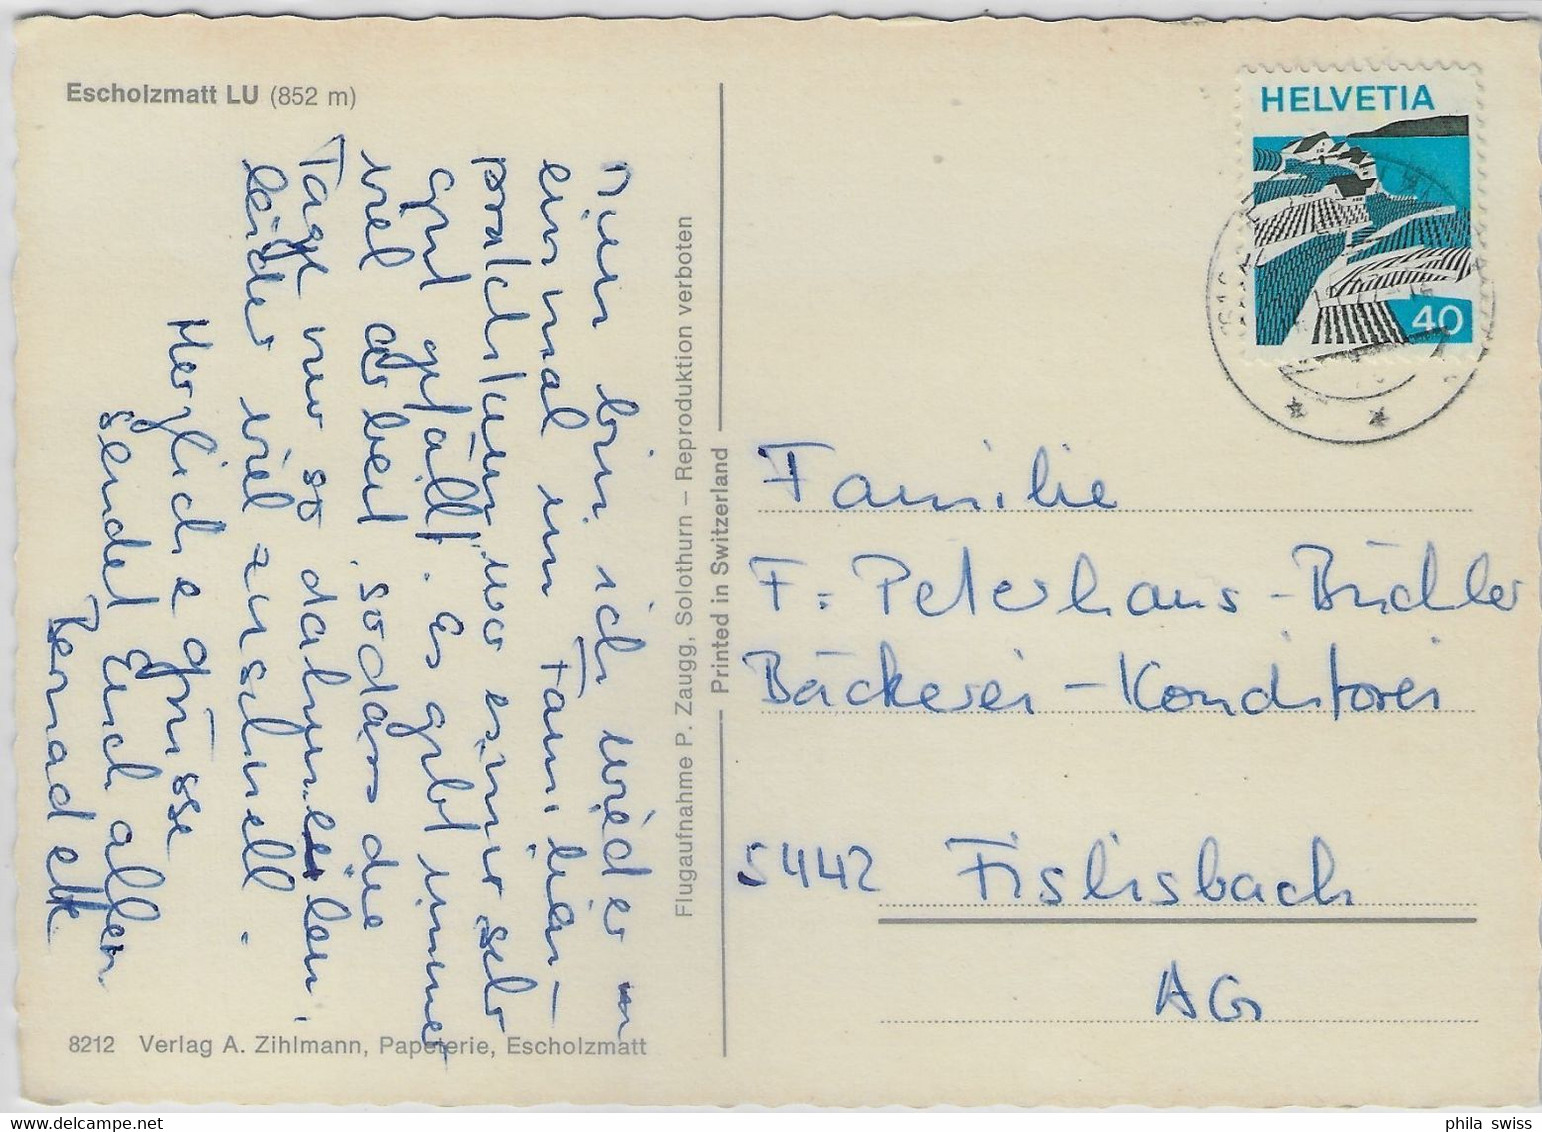 Escholzmatt LU (852 m)
HELVETIA
40
Nun bin ich wieder
einmal im Familien-
wo es mir sehr
gut gefällt. Es gibt immer
viel arbeit, sodass die
Tage nur so
leider viel zu schnell.
Herzliche grüsse
sendet Euch allen
Bernadett
Flugaufnahme P. Zaugg, Solothurn – Reproduktion verboten
Printed in Switzerland
Familie
F. Peterhans-Büchler
Bäckerei-Konditorei
5442 Fislisbach
AG
8212 Verlag A. Zihlmann, Papeterie, Escholzmatt
phila swiss